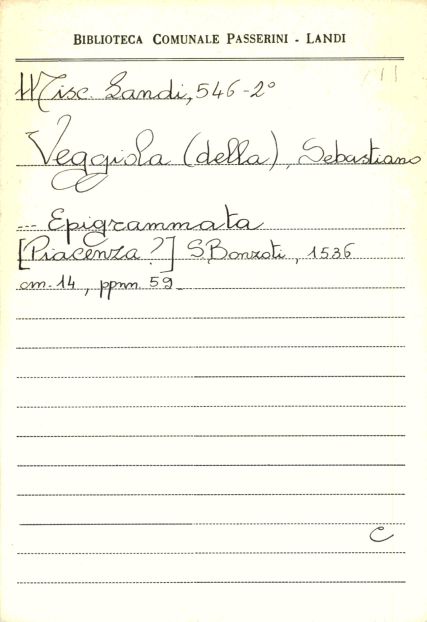 BIBLIOTECA COMUNALE PASSERINI - LANDI
Misc. Landi, 546-2°
Veggiola (della), Sebastiano
--- Epigrammata
[Piacenza?] S.Bonzoti, 1536
cm. 14, ppnn. 59.
C